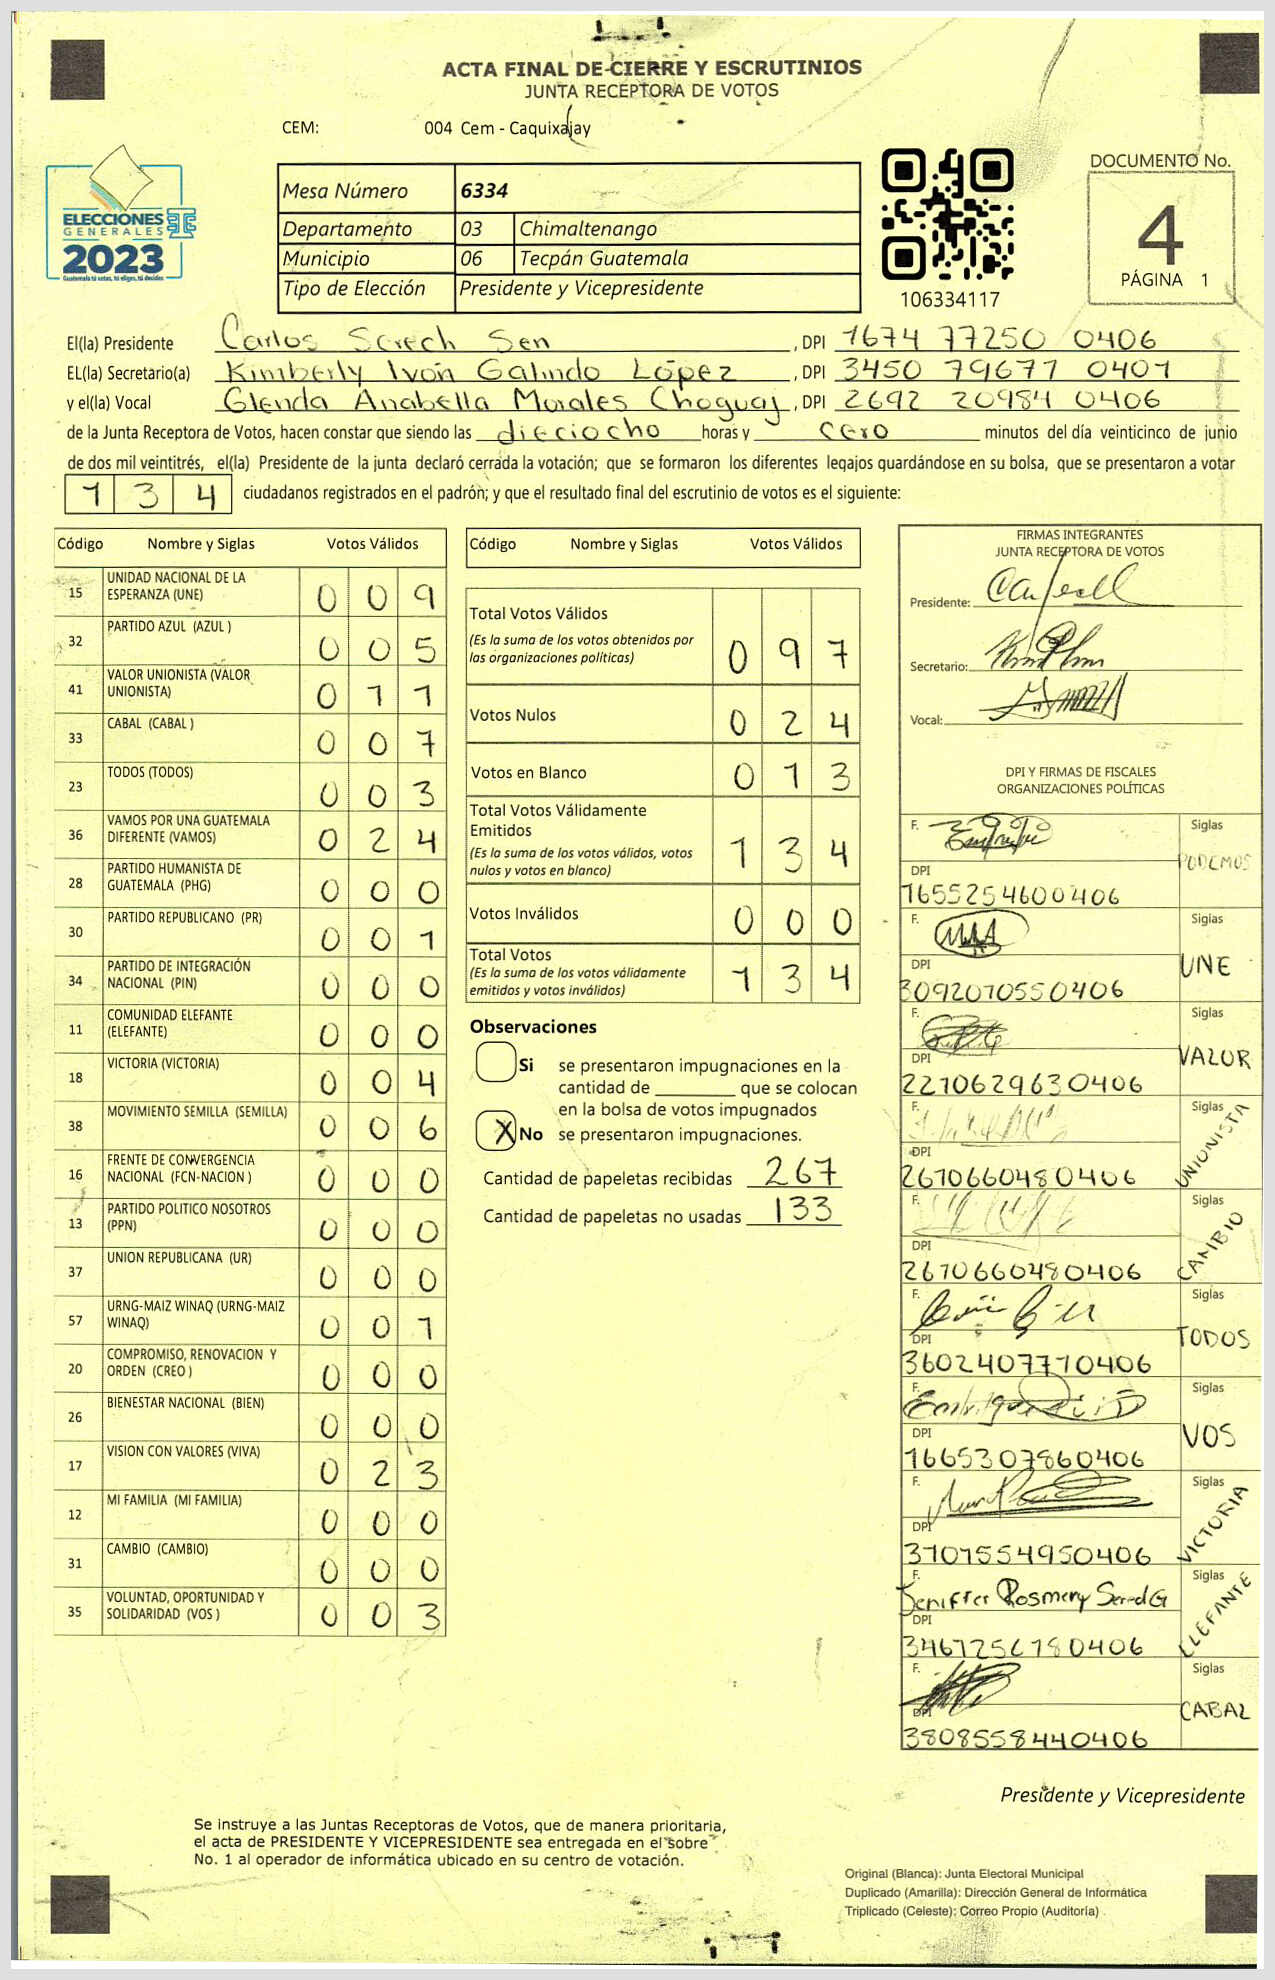 ACTA FINAL DE CIERRE Y ESCRUTINIOS
JUNTA RECEPTORA DE VOTOS
CEM: 004 Cem - Caquixajay
ELECCIONES
GENERALES
2023
Guatemala tú votas, tú eliges, tú decides
Mesa Número 6334
Departamento 03 Chimaltenango
Municipio 06 Tecpán Guatemala
Tipo de Elección Presidente y Vicepresidente
106334117
DOCUMENTO No.
4
PÁGINA 1
El(la) Presidente Carlos Screch Sen, DPI 1674 77250 0406
EL(la) Secretario(a) Kimberly Ivon Galindo López, DPI 3450 79677 0401
y el(la) Vocal Glenda Anabella Morales Choguaj, DPI 2692 20984 0406
de la Junta Receptora de Votos, hacen constar que siendo las dieciocho horas y cero minutos del día veinticinco de junio
de dos mil veintitrés, el(la) Presidente de la junta declaró cerrada la votación; que se formaron los diferentes legajos guardándose en su bolsa, que se presentaron a votar
134 ciudadanos registrados en el padrón; y que el resultado final del escrutinio de votos es el siguiente:
Código Nombre y Siglas Votos Válidos
15 UNIDAD NACIONAL DE LA ESPERANZA (UNE) 0 0 9
32 PARTIDO AZUL (AZUL ) 0 0 5
41 VALOR UNIONISTA (VALOR UNIONISTA) 0 1 1
33 CABAL (CABAL ) 0 0 7
23 TODOS (TODOS) 0 0 3
36 VAMOS POR UNA GUATEMALA DIFERENTE (VAMOS) 0 2 4
28 PARTIDO HUMANISTA DE GUATEMALA (PHG) 0 0 0
30 PARTIDO REPUBLICANO (PR) 0 0 1
34 PARTIDO DE INTEGRACIÓN NACIONAL (PIN) 0 0 0
11 COMUNIDAD ELEFANTE (ELEFANTE) 0 0 0
18 VICTORIA (VICTORIA) 0 0 4
38 MOVIMIENTO SEMILLA (SEMILLA) 0 0 6
16 FRENTE DE CONVERGENCIA NACIONAL (FCN-NACION ) 0 0 0
13 PARTIDO POLITICO NOSOTROS (PPN) 0 0 0
37 UNION REPUBLICANA (UR) 0 0 0
57 URNG-MAIZ WINAQ (URNG-MAIZ WINAQ) 0 0 1
20 COMPROMISO, RENOVACION Y ORDEN (CREO ) 0 0 0
26 BIENESTAR NACIONAL (BIEN) 0 0 0
17 VISION CON VALORES (VIVA) 0 2 3
12 MI FAMILIA (MI FAMILIA) 0 0 0
31 CAMBIO (CAMBIO) 0 0 0
35 VOLUNTAD, OPORTUNIDAD Y SOLIDARIDAD (VOS ) 0 0 3
Código Nombre y Siglas Votos Válidos
Total Votos Válidos 0 9 7
(Es la suma de los votos obtenidos por
las organizaciones políticas)
Votos Nulos 0 2 4
Votos en Blanco 0 1 3
Total Votos Válidamente
Emitidos 1 3 4
(Es la suma de los votos válidos, votos
nulos y votos en blanco)
Votos Inválidos 0 0 0
Total Votos 1 3 4
(Es la suma de los votos válidamente
emitidos y votos inválidos)
Observaciones
Si se presentaron impugnaciones en la
cantidad de ________ que se colocan
en la bolsa de votos impugnados
X No se presentaron impugnaciones.
Cantidad de papeletas recibidas 267
Cantidad de papeletas no usadas 133
FIRMAS INTEGRANTES
JUNTA RECEPTORA DE VOTOS
Presidente:
Secretario:
Vocal:
DPI Y FIRMAS DE FISCALES
ORGANIZACIONES POLÍTICAS
F. Siglas PODEMOS
DPI 1655254600406
F. Siglas UNE
DPI 3092070550406
F. Siglas VALOR
DPI 2210629630406
F. Siglas UNIONISTA
DPI 2670660480406
F. Siglas CAMBIO
DPI 2670660480406
F. Siglas TODOS
DPI 3602407710406
F. Siglas VOS
DPI 1665307860406
F. Siglas VICTORIA
DPI 3101554950406
F. Jeniffer Rosmery Siglas ELEFANTE
DPI 3467256780406
F. Siglas CABAL
DPI 3808558440406
Presidente y Vicepresidente
Se instruye a las Juntas Receptoras de Votos, que de manera prioritaria,
el acta de PRESIDENTE Y VICEPRESIDENTE sea entregada en el sobre
No. 1 al operador de informática ubicado en su centro de votación.
Original (Blanca): Junta Electoral Municipal
Duplicado (Amarilla): Dirección General de Informática
Triplicado (Celeste): Correo Propio (Auditoría)